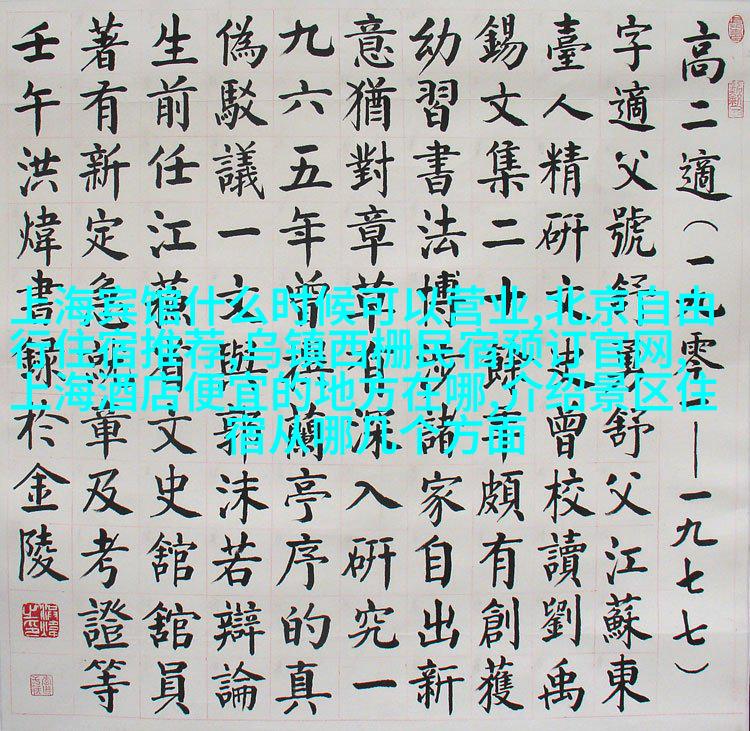 高二適（一九零三——一九七七）
字適父號舒父江蘇東
臺人精研文史曾校讀劉禹
錫文集二十餘章頗有創獲
幼習書法博涉諸家自出新
意猶對章草有深入研究一
九六五年曾撰蘭亭序的真
偽駁議一文與郭沫若辯論
生前任江蘇省文史舘舘員
著有新定急就章及考證等
壬午洪煒書錄於金陵
上海宾馆什么时候可以营业,北京自由
行住宿推荐,乌镇西栅民宿预订官网,
上海酒店便宜的地方在哪,介绍景区住
宿从哪几个方面